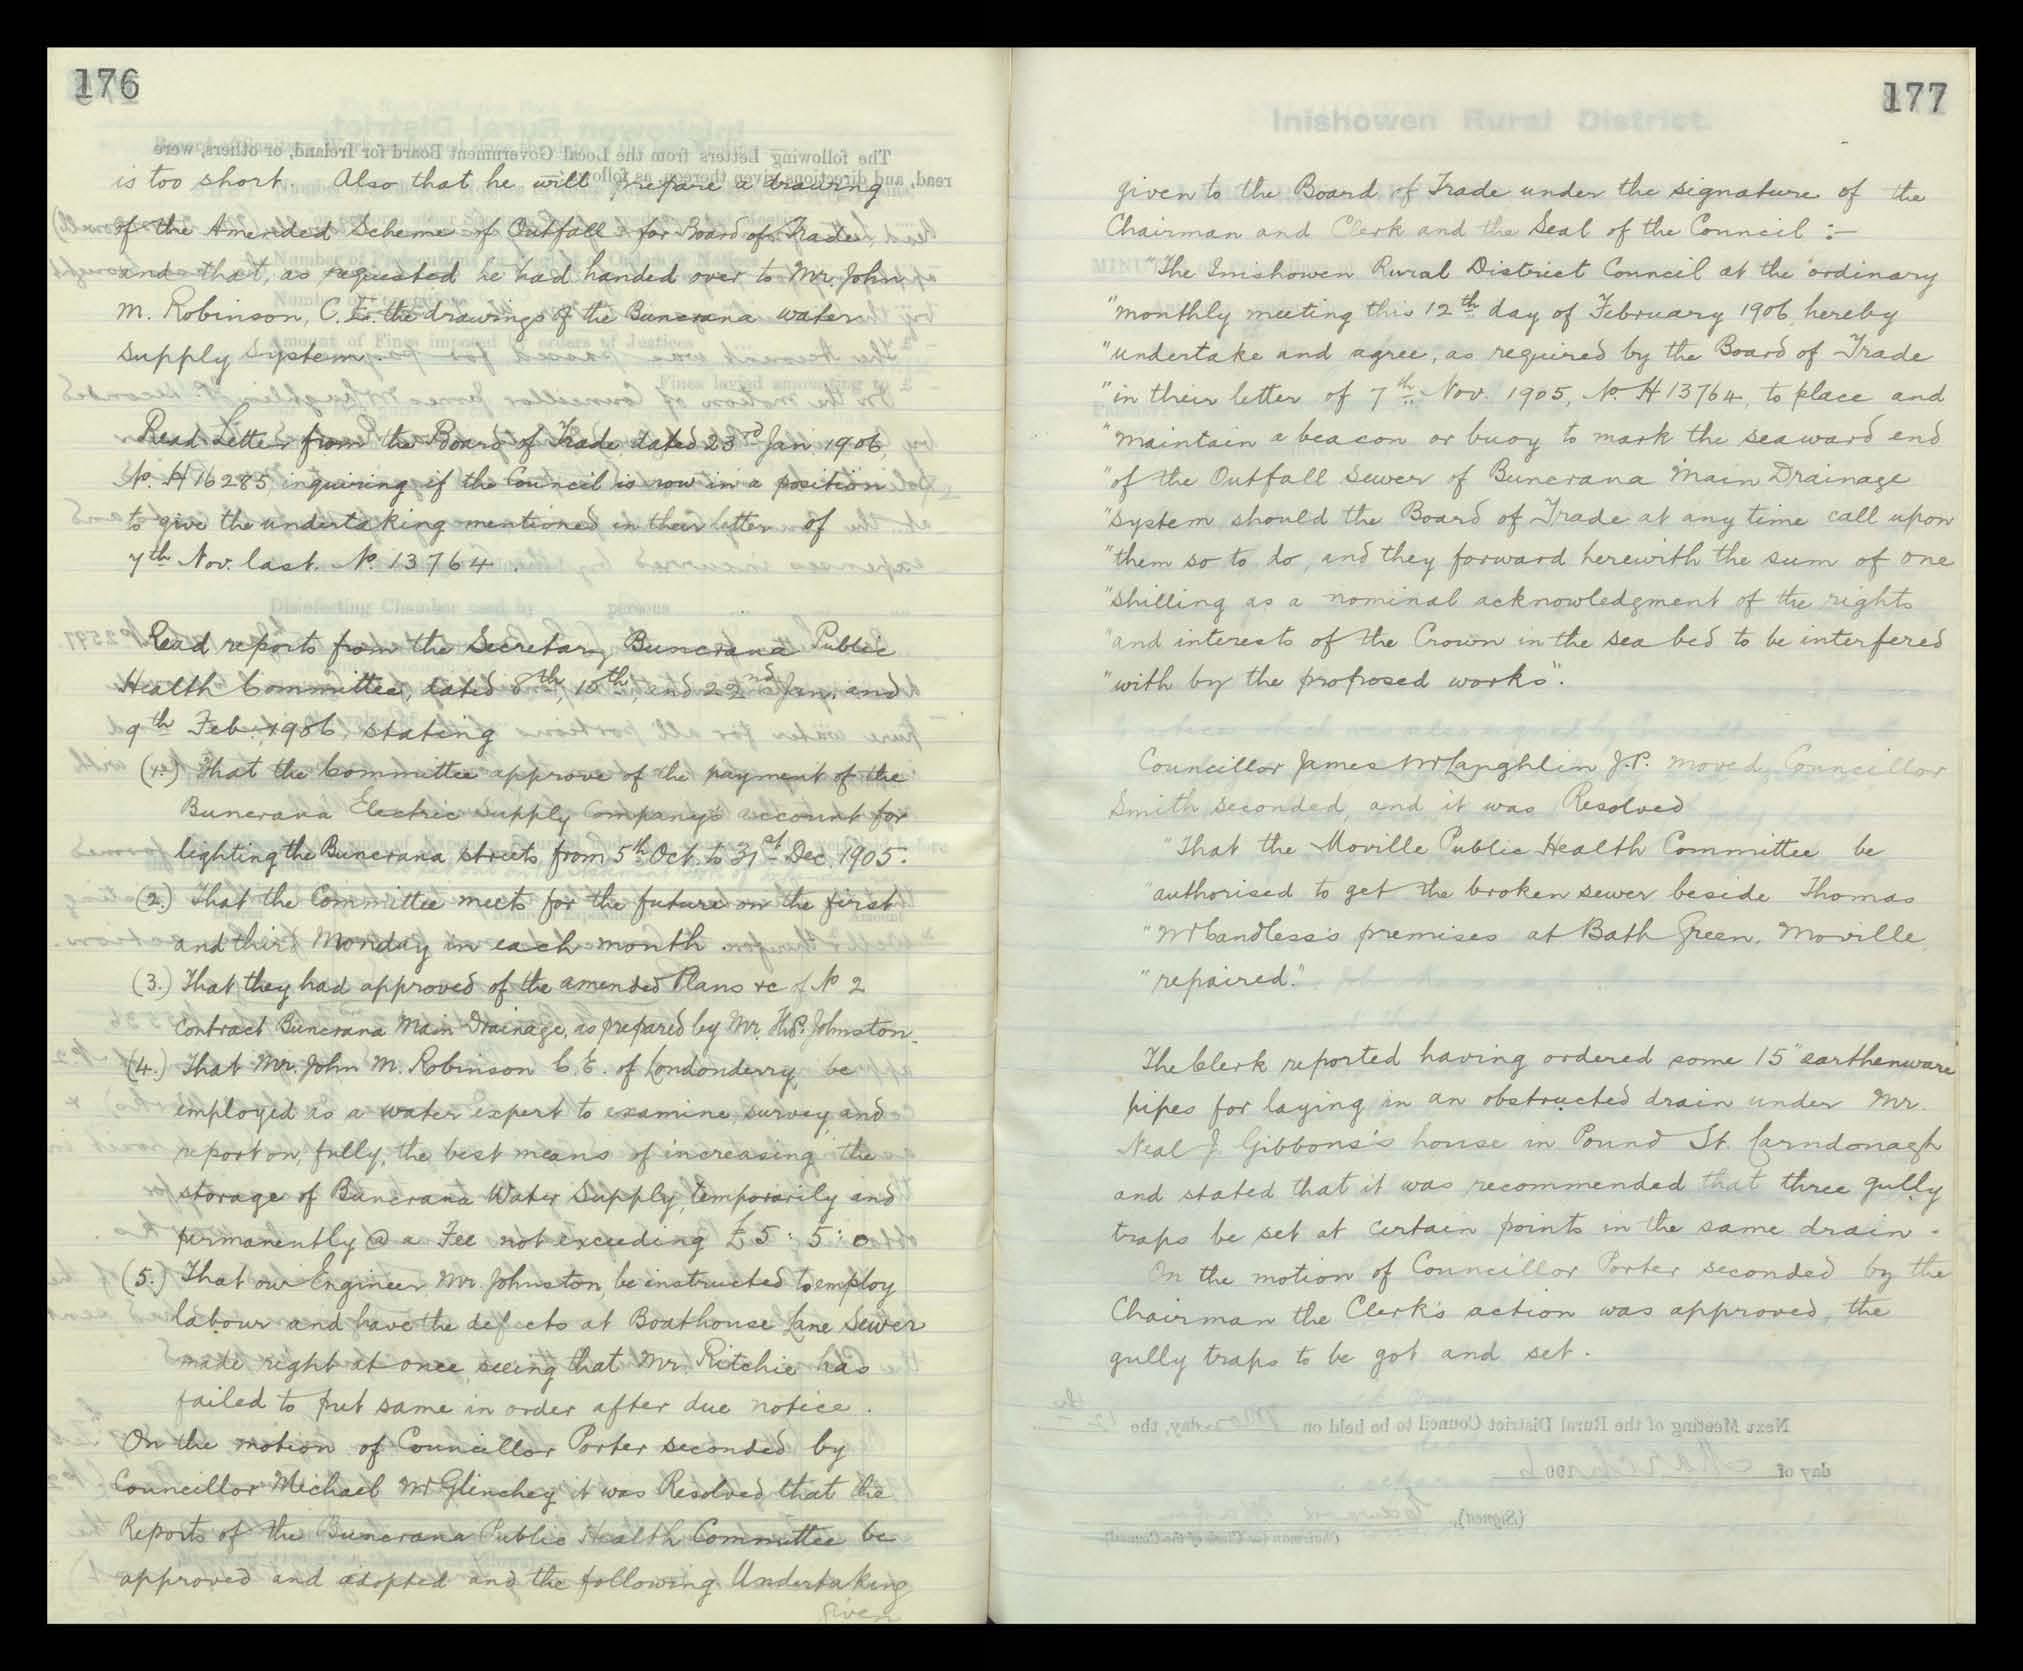 176
is too short. Also that he will prepare a drawing
of the Amended Scheme of Outfall for Board of Trade,
and that, as requested he had handed over to Mr. John
M. Robinson, C.E. the drawings of the Buncrana water
supply system.
Read Letter from the Board of Trade, dated 23rd Jan 1906,
No. H 16285, inquiring if the Council is now in a position
to give the undertaking mentioned in their letter of
7th Nov. last. No. 13764.
Read reports from the Secretary Buncrana Public
Health Committee, dated 8th, 15th, and 22nd Jan, and
9th Feb. 1906, stating
(1.) That the Committee approve of the payment of the
Buncrana Electric Supply Company's account for
lighting the Buncrana streets from 5th Oct. to 31st Dec. 1905.
(2.) That the Committee meets for the future on the first
and third Monday in each month.
(3.) That they had approved of the amended Plans &c of No 2
Contract Buncrana Main Drainage, as prepared by Mr. Johnston.
(4.) That Mr. John M. Robinson C.E. of Londonderry, be
employed as a water expert to examine, survey, and
report on, fully, the best means of increasing the
storage of Buncrana Water Supply, temporarily and
permanently @ a Fee not exceeding £5 : 5 : 0
(5.) That our Engineer Mr Johnston, be instructed to employ
labour and have the defects at Boathouse Lane Sewer
made right at once, seeing that Mr. Ritchie has
failed to put same in order after due notice.
On the motion of Councillor Porter seconded by
Councillor Michael McGlinchey it was Resolved that the
Reports of the Buncrana Public Health Committee be
approved and adopted and the following Undertaking
given
177
Inishowen Rural District.
given to the Board of Trade under the signature of the
Chairman and Clerk and the Seal of the Council :—
"The Inishowen Rural District Council at the ordinary
"monthly meeting this 12th day of February 1906, hereby
"undertake and agree, as required by the Board of Trade
"in their letter of 7th Nov. 1905, No. H 13764, to place and
"maintain a beacon or buoy to mark the seaward end
"of the Outfall Sewer of Buncrana Main Drainage
"system should the Board of Trade at any time call upon
"them so to do, and they forward herewith the sum of one
"shilling as a nominal acknowledgment of the rights
"and interests of the Crown in the sea bed to be interfered
"with by the proposed works".
Councillor James McLaughlin J.P. moved, Councillor
Smith seconded, and it was Resolved
"That the Moville Public Health Committee be
"authorised to get the broken sewer beside Thomas
"McCandless's premises at Bath Green, Moville,
"repaired."
The Clerk reported having ordered some 15" earthenware
pipes for laying in an obstructed drain under Mr.
Neal J. Gibbons's house in Pound St. Carndonagh
and stated that it was recommended that three gully
traps be set at certain points in the same drain.
On the motion of Councillor Porter seconded by the
Chairman the Clerk's action was approved, the
gully traps to be got and set.